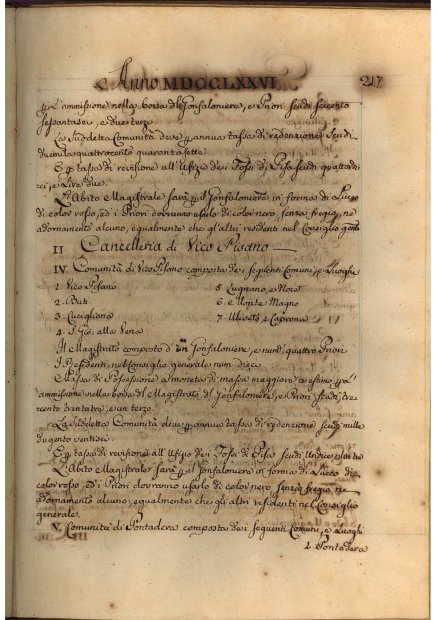 Anno MDCCLXXVI. 217
p l'ammissione nella borsa del Gonfaloniere, e Priori scudi secento
sessantasei, e due terzi
La suddetta Comunità deve p annua tassa di redenzione scudi
duemila quattrocento quarantasette
E p tassa di revisione all'Ufizio dei Fossi di Pisa scudi quattordi
ci, e Lire due.
L'Abito Magistrale sarà p il Gonfaloniere in forma di Lucco
di color rosso, ed i Priori dovranno usarlo di color nero senza fregio, ne
adornamento alcuno, egualmente che gl'altri residenti nel Consiglio genle
II Cancelleria di Vico Pisano
IV. Comunità di Vico Pisano composta de i seguenti Comuni, e Luoghi
1. Vico Pisano 5. Lugnano, e Noce
2. Buti 6. e Monte Magno
3. Cucigliana 7. Uliveto e Caprona
4. S. Gio: alla Vena
Il Magistrato composto d'un Gonfaloniere, e num. quattro Priori
I Residenti nel Consiglio generale num. dieci
Massa di Possessione almeno di massa maggiore a estimo p
ammissione nella borsa del Magistrato del Gonfaloniere, e Priori scudi tre
cento trentatre, e un terzo.
La suddetta Comunità deve p annua tassa di redenzione scudi mille
dugento ventisei
E p tassa di revisione all'Ufizio dei Fossi di Pisa scudi Undici
L'Abito Magistrale sarà p il Gonfaloniere in forma di Lucco di
color rosso, ed i Priori dovranno usarlo di color nero senza fregio, ne
adornamento alcuno, egualmente che gli altri residenti nel Consiglio
generale.
V. Comunità di Pontadera composta de i seguenti Comuni, e Luoghi
1. Pontadera